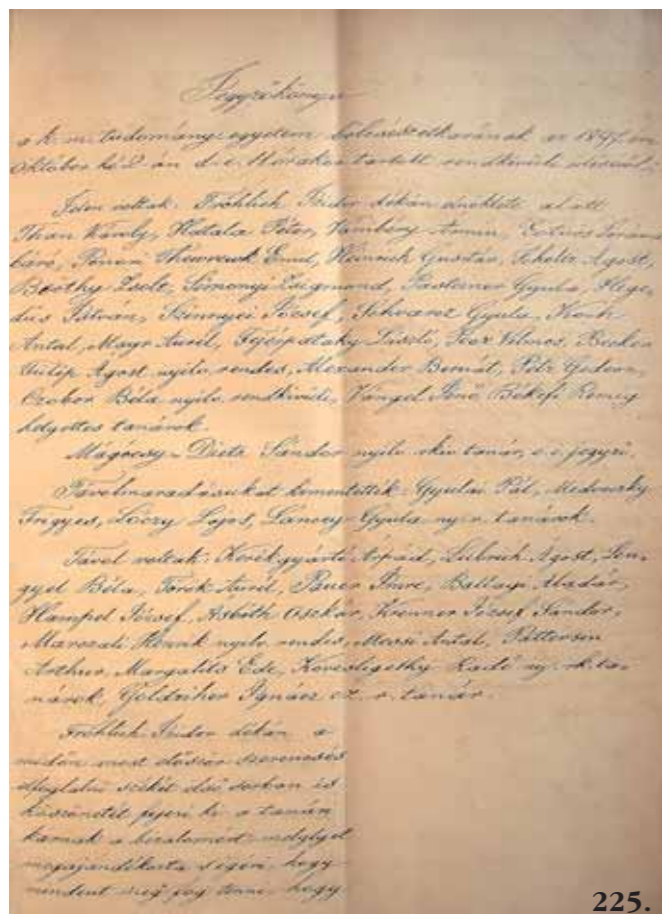 Jegyzőkönyv
a k. m. tudomány-egyetem bölcsészetkarának az 1897. évi
október hó 2-án d. e. órakor tartott rendkívüli üléséről.
Jelen voltak: Fröhlich Izidor dékán elnöklete alatt
Than Károly, Hatala Péter, Vámbéry Ármin, Eötvös Loránd
báró, Ponori Thewrewk Emil, Heinrich Gusztáv, Scholtz Ágost,
Beöthy Zsolt, Simonyi Zsigmond, Pasteiner Gyula, Hege-
düs István, Szinnyei József, Schvarcz Gyula, Koch
Antal, Mayr Aurél, Fejérpataky László, Pecz Vilmos, Becker
Fülöp Ágost nyilv. rendes, Alexander Bernát, Petz Gedeon,
Czobor Béla nyilv. rendkívüli, Vángel Jenő, Békefi Remig
helyettes tanárok.
Mágócsy-Dietz Sándor nyilv. rkiv. tanár, e. i. jegyző.
Távolmaradásukat kimentették: Gyulai Pál, Medveczky
Frigyes, Lóczy Lajos, Lánczy Gyula ny. r. tanárok.
Távol voltak: Kerékgyártó Árpád, Lubrich Ágost, Len-
gyel Béla, Török Aurél, Pauer Imre, Ballagi Aladár,
Hampel József, Asbóth Oszkár, Krenner József Sándor,
Marczali Henrik nyilv. rendes, Antal, Patterson
Arthur, Margalits Ede, Kövesligethy Radó ny. rk. ta-
nárok, Goldziher Ignácz cz. r. tanár.
Fröhlich Izidor dékán a
midőn most először szerencsés
elfoglalni székét első sorban is
köszönetét fejezi ki a tanári
karnak a bizalomért melylyel
megajándékozta s igéri, hogy
mindent meg fog tenni, hogy
225.